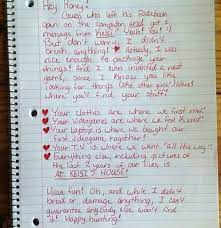 Hey Honey!
Guess who left his Facebook
open on the computer and got a
message from KEISI? Yeah! You! :)
But don't worry, I didn't
break anything! ♥ Actually, I was
nice enough to package your
things! And I even invented a neat
game, since I know you like
looking for things (like other girls' sites)
where you'll find your stuff!
♥ Your clothes are where we first met!
♥ Your Videogames are where we first kissed!
♥ Your laptop is where we bought our
first videogame together!
♥ Your T.V. is where we went "all the way"!
♥ Everything else, including pictures of
the last 2 years of our lives, is
AT KEISI'S HOUSE!
Have fun! Oh, and while I didn't
break or damage anything, I can't
guarantee anybody else won't find
it! Happy hunting!